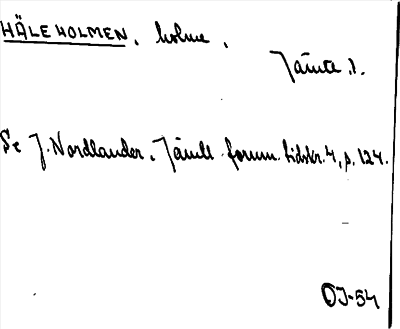 HÄLEHOLMEN, holme,
Jämtl.
Se J. Nordlander, Jämtl. fornm. tidskr. 4, p. 124.
OJ-54